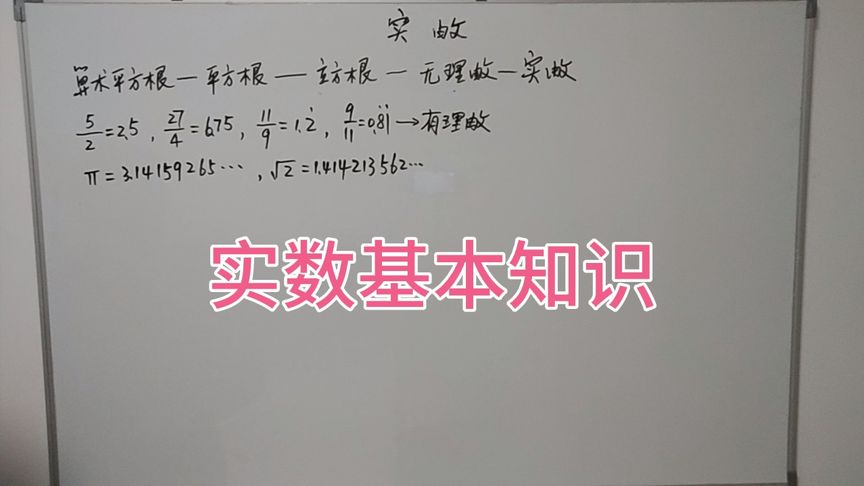 实数
算术平方根—平方根—立方根—无理数—实数
5/2=2.5，27/4=6.75，11/9=1.2̇，9/11=0.8̇1̇→有理数
π=3.14159265···，√2=1.414213562···
实数基本知识